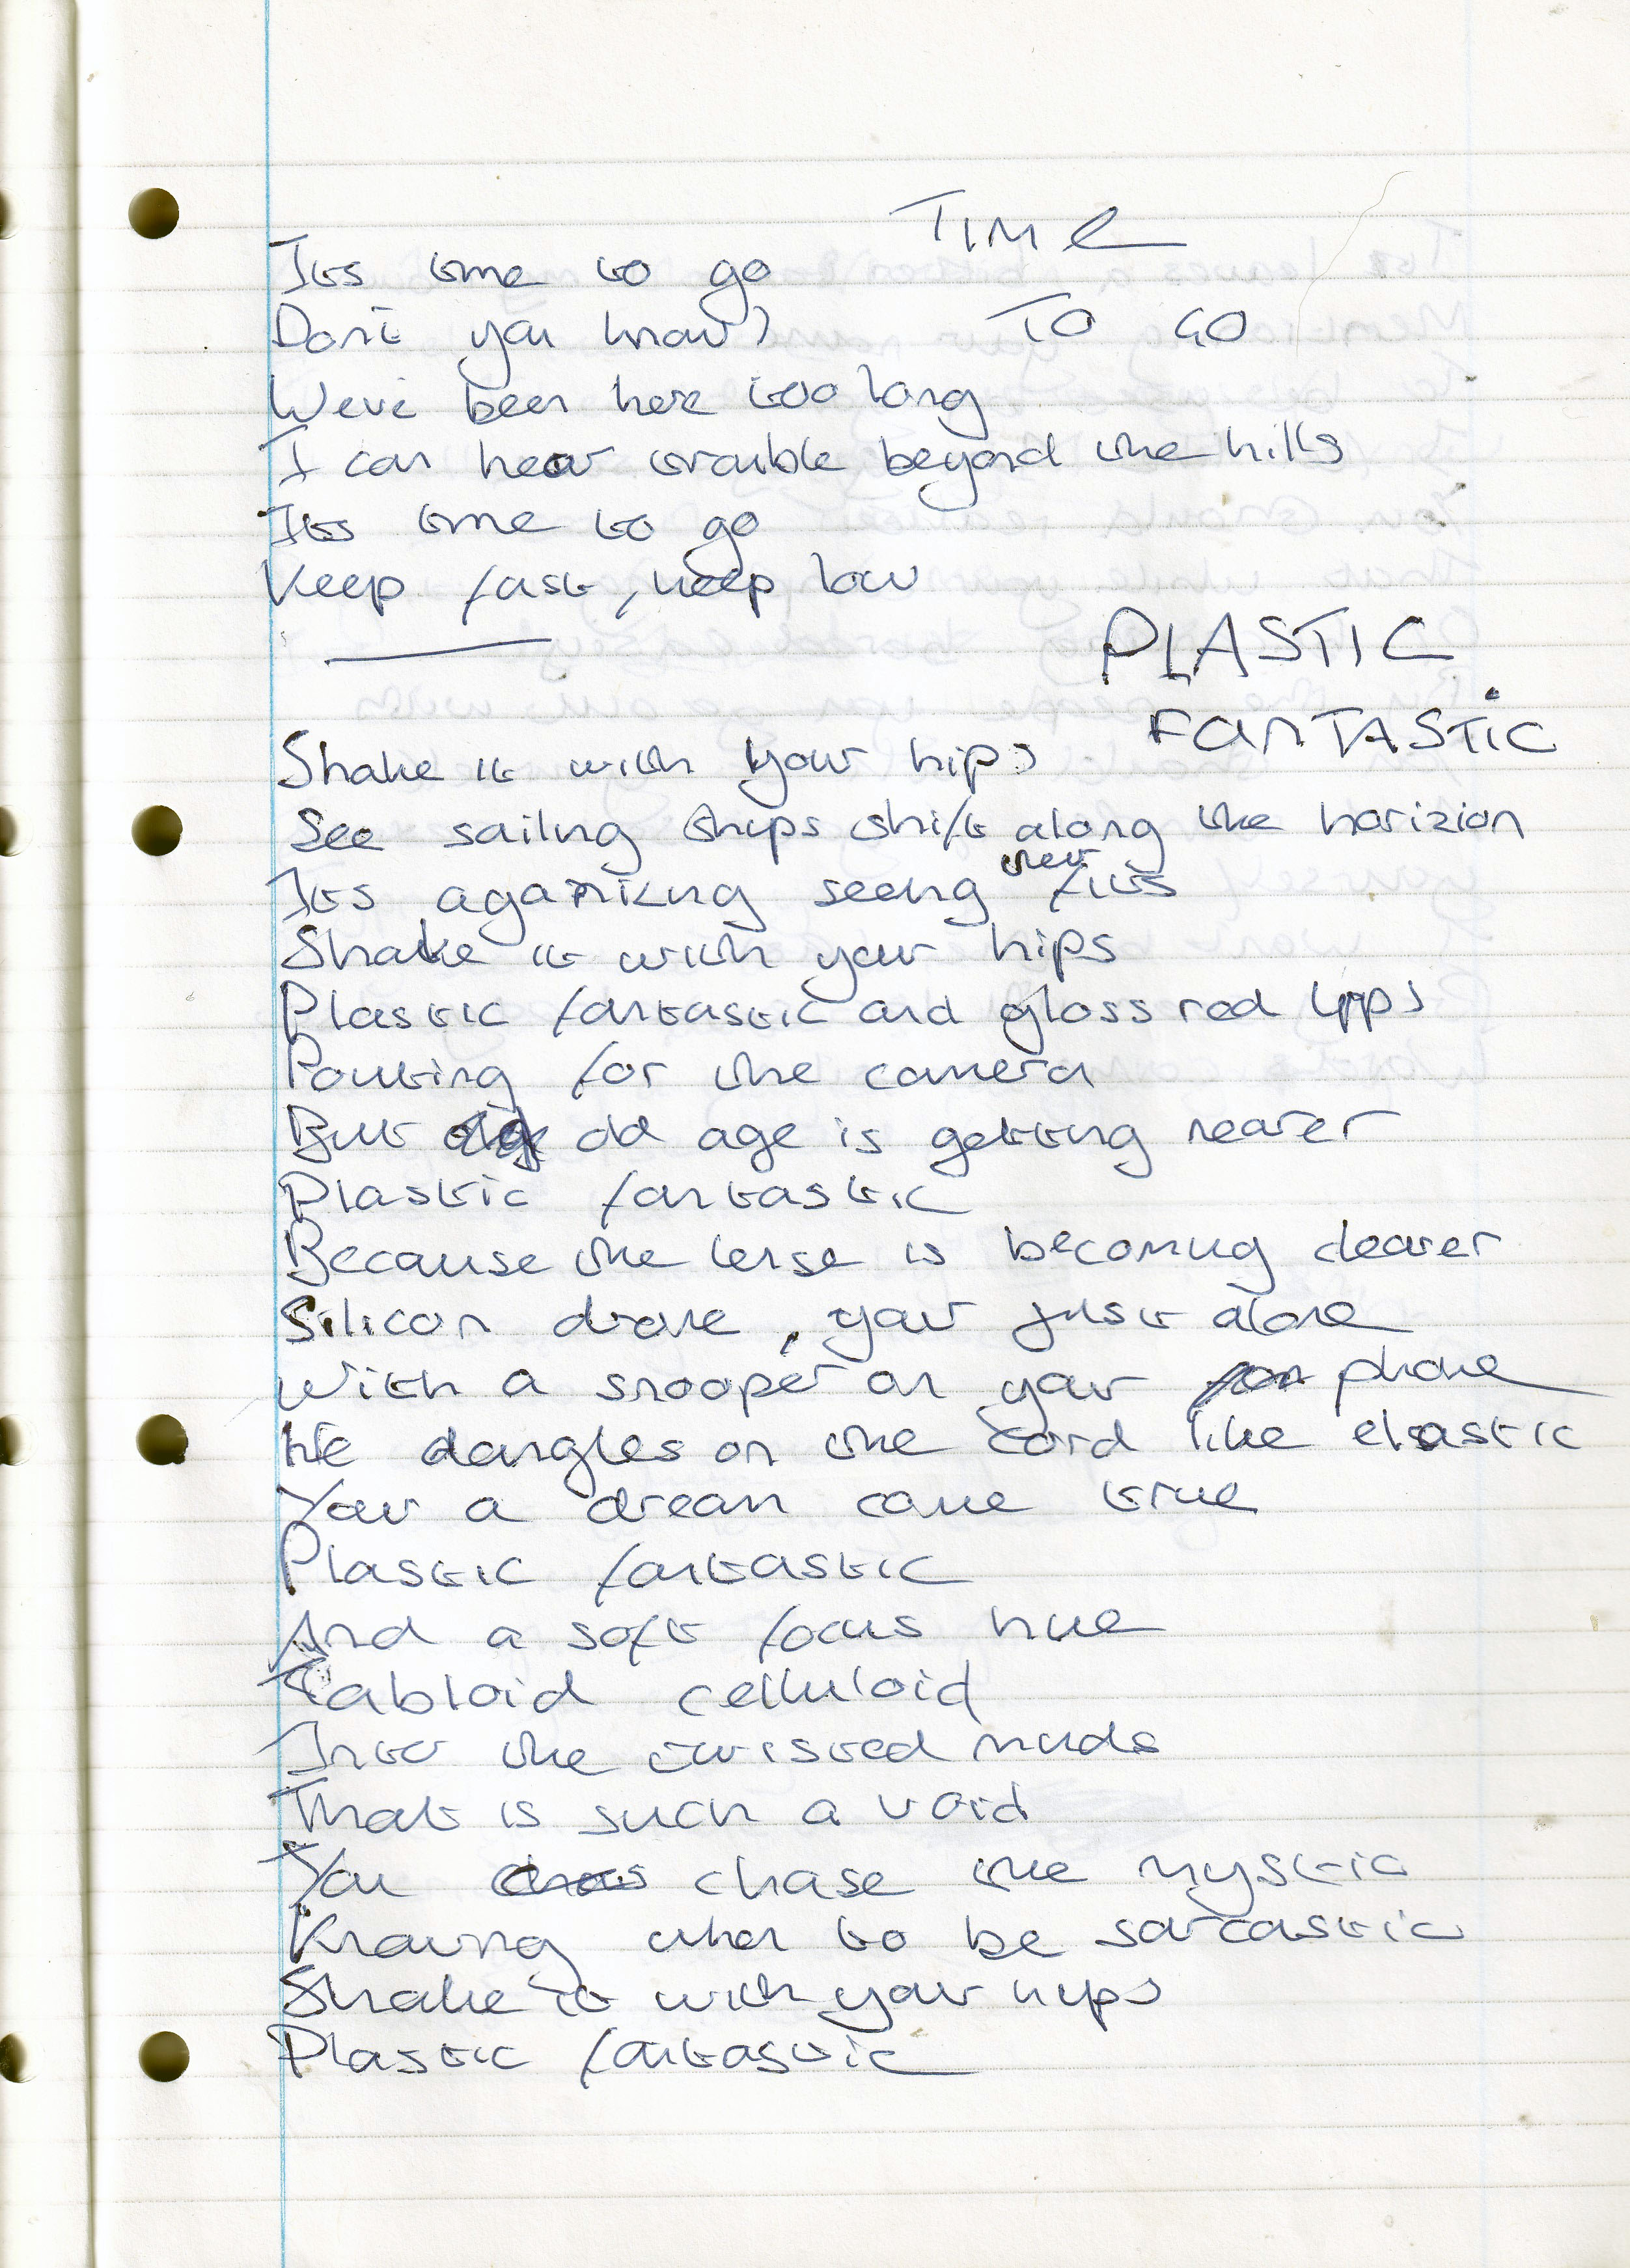 TIME
Its time to go
TO GO
Dont you know?
Weve been here too long
I can hear trouble beyond the hills
Its time to go
Keep fast, keep low
PLASTIC
FANTASTIC
Shake it with your hips
See sailing ships shift along the horizion
Its aganizing seeing their fits
Shake it with your hips
Plastic fantastic and gloss red lips
Pouting for the camera
But old age is getting nearer
Plastic fantastic
Because the lense is becoming clearer
Silicon drone, your just alone
With a snooper on your phone
He dangles on the cord like elastic
Your a dream come true
Plastic fantastic
And a soft focus hue
Tabloid celluloid
Into the twisted minds
That is such a void
You chase the mystic
Knowing when to be sarcastic
Shake it with your hips
Plastic fantastic